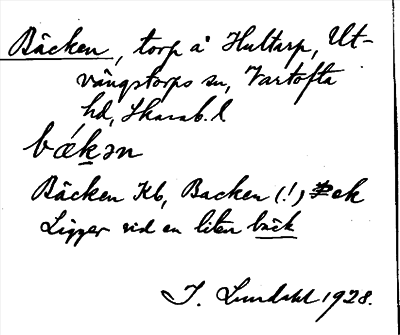 Bäcken, torp å Hultarp, Ut-
vängstorps sn, Vartofta
hd, Skarab. l
bǽkən
Bäcken Kb, Backen (!) ek
Ligger vid en liten bäck
J. Lundahl 1928.